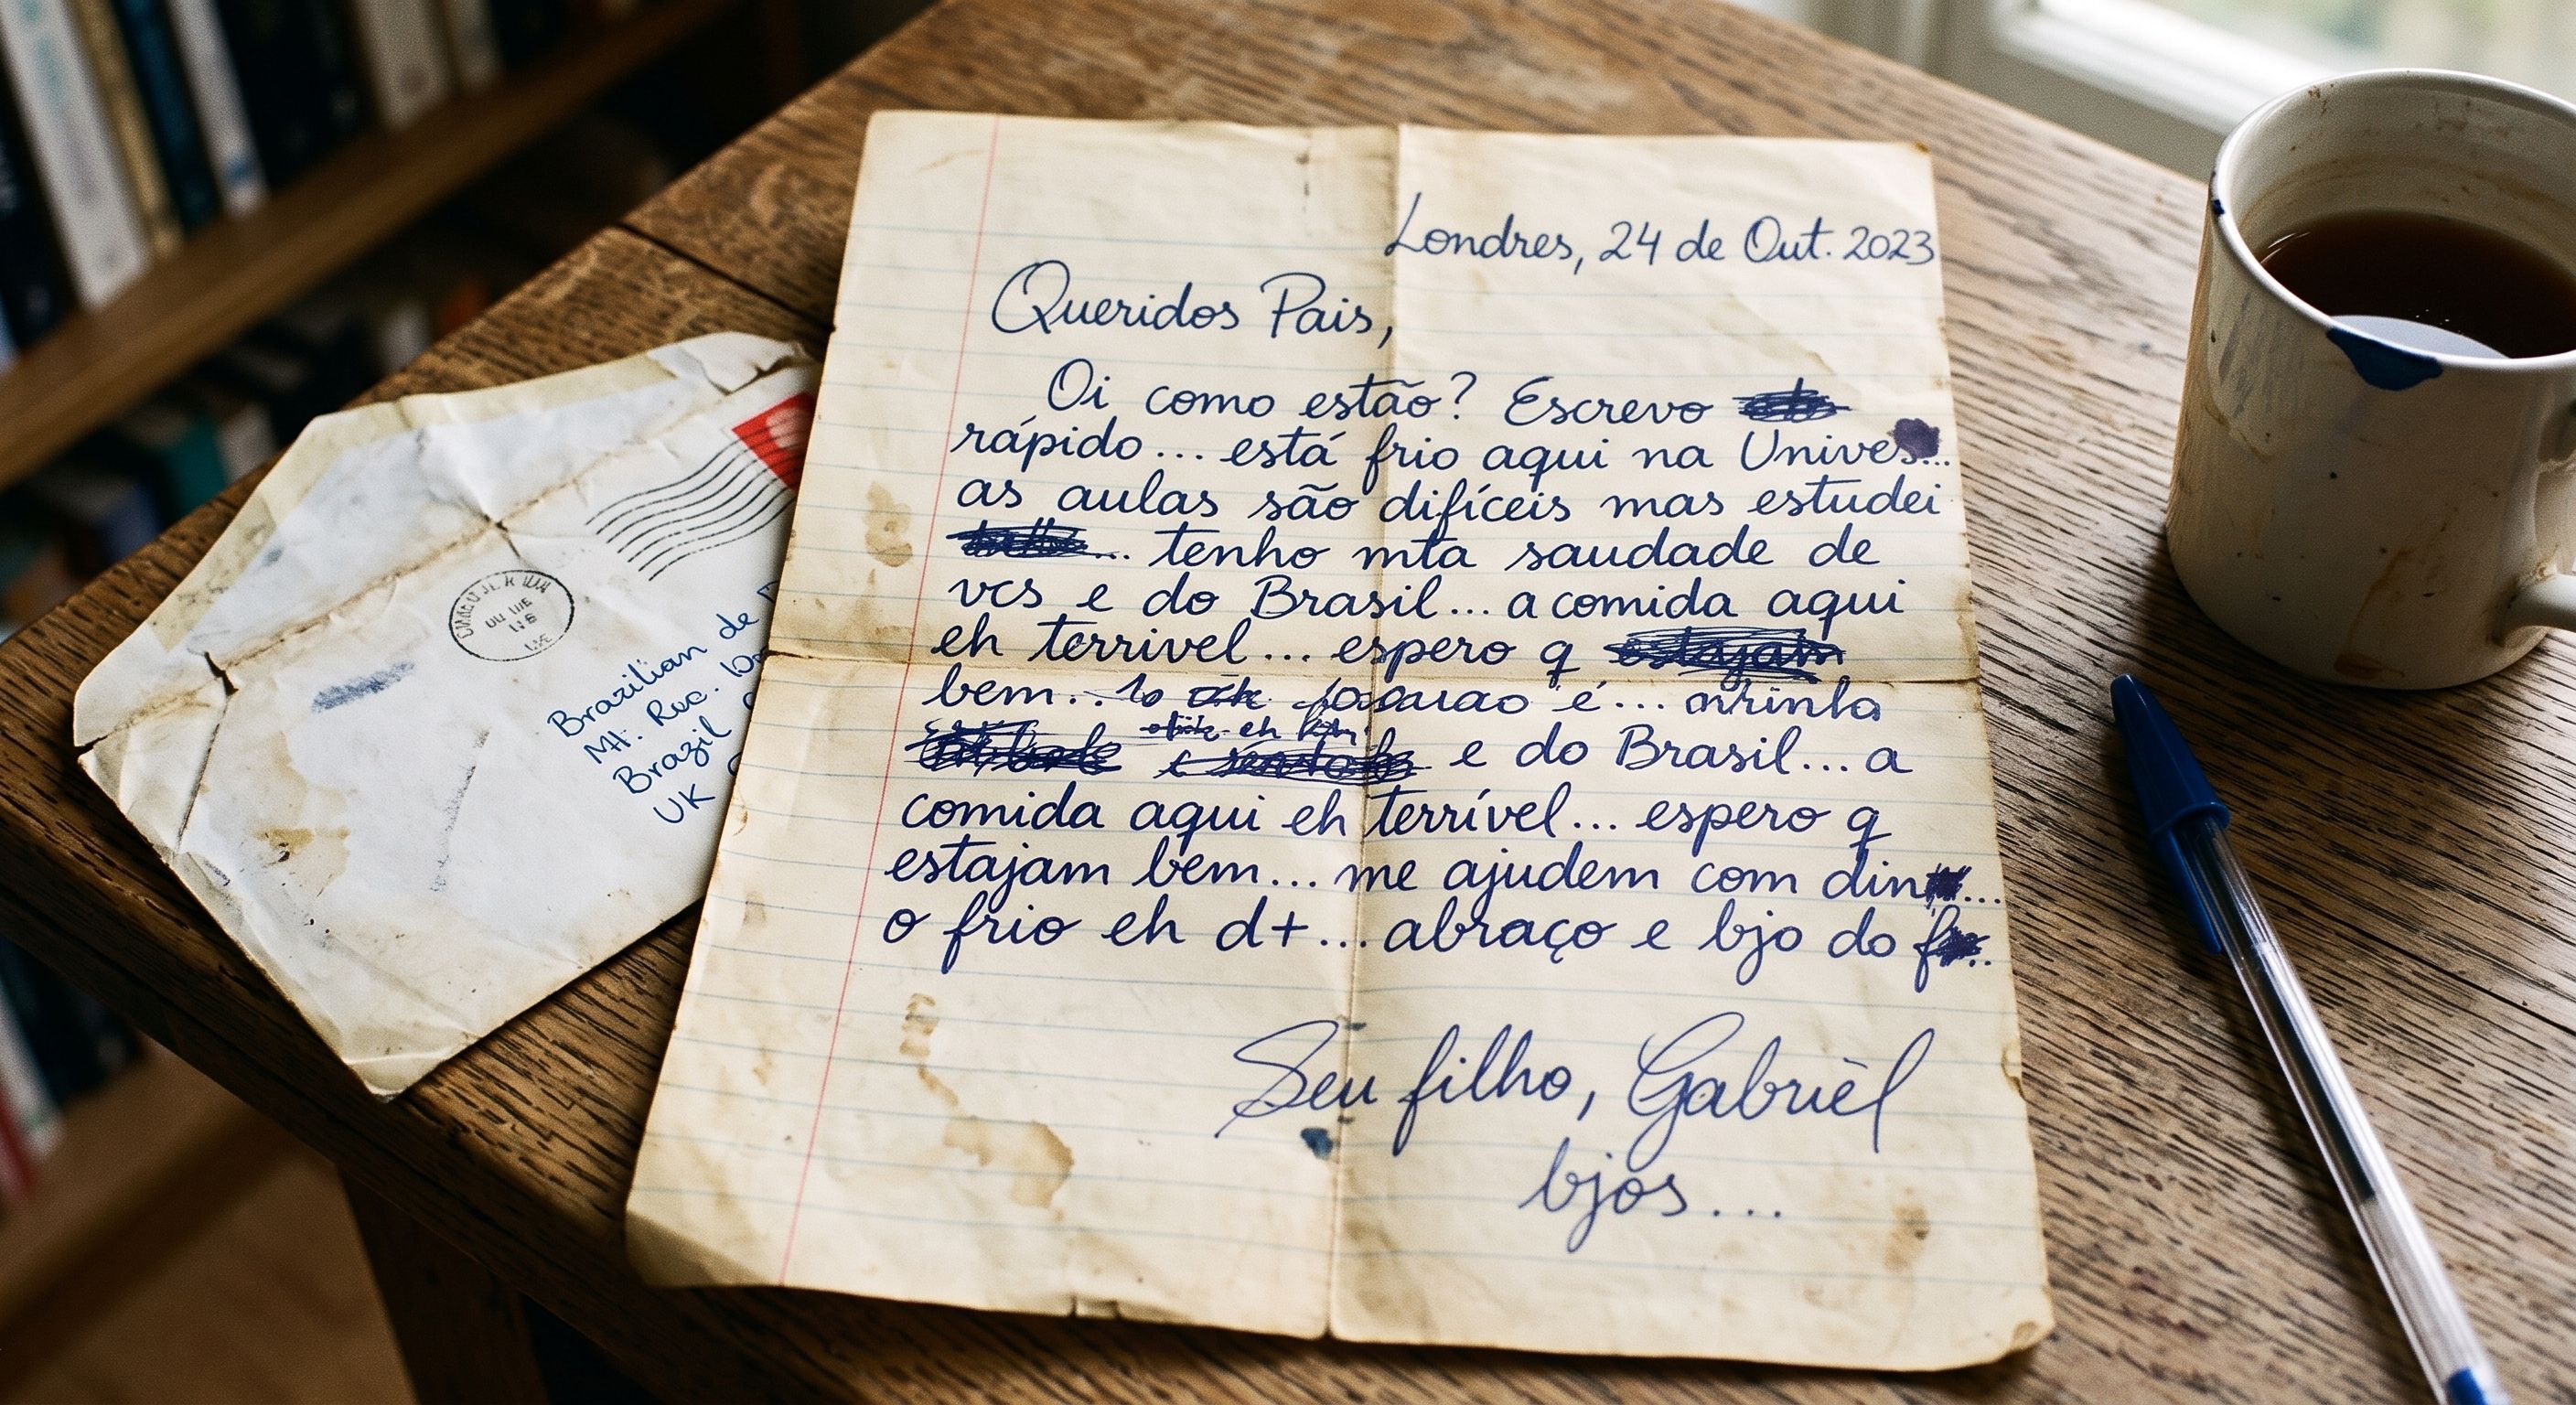 Londres, 24 de Out. 2023
Queridos Pais,
Oi como estão? Escrevo
rápido... está frio aqui na Unives...
as aulas são difíceis mas estudei
... tenho mta saudade de
vcs e do Brasil... a comida aqui
eh terrivel... espero q estajam
bem...
e do Brasil... a
comida aqui eh terrível... espero q
estajam bem... me ajudem com din...
o frio eh d+... abraço e bjo do f...
Seu filho, Gabriel
bjos...
Brazilian de
Mt. Roo.
Brazil
UK